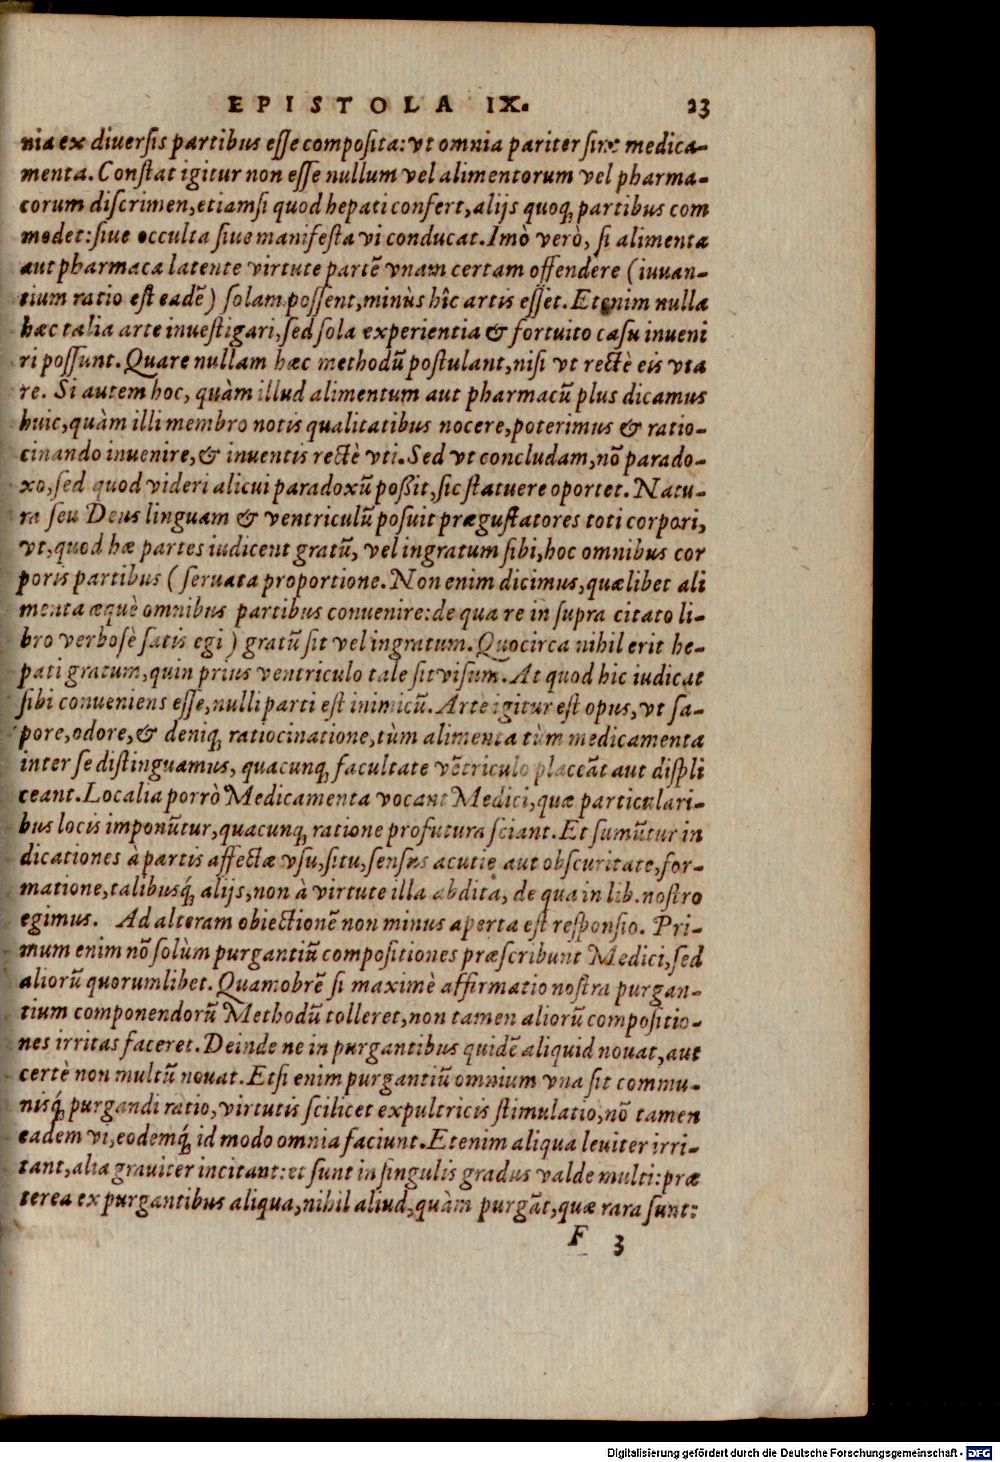 EPISTOLA IX. 23
nia ex diuersis partibus esse composita: vt omnia pariter sint medica-
menta. Constat igitur non esse nullum vel alimentorum vel pharma-
corum discrimen, etiamsi quod hepati confert, alijs quoq; partibus com
modet: siue occulta siue manifesta vi conducat. Imò verò, si alimenta
aut pharmaca latente virtute partē vnam certam offendere (iuuan-
tium ratio est eadē) solam possent, minùs hîc artis esset. Etenim nulla
hæc talia arte inuestigari, sed sola experientia & fortuito casu inueni
ri possunt. Quare nullam hæc methodū postulant, nisi vt rectè eis vta
re. Si autem hoc, quàm illud alimentum aut pharmacū plus dicamus
huic, quàm illi membro notis qualitatibus nocere, poterimus & ratio-
cinando inuenire, & inuentis rectè vti. Sed vt concludam, nō parado-
xo, sed quod videri alicui paradoxū poßit, sic statuere oportet. Natu-
ra seu Deus linguam & ventriculū posuit prægustatores toti corpori,
vt, quod hæ partes iudicent gratū, vel ingratum sibi, hoc omnibus cor
poris partibus (seruata proportione. Non enim dicimus, quælibet ali
menta æquè omnibus partibus conuenire: de qua re in supra citato li-
bro verbosè satis egi) gratū sit vel ingratum. Quocirca nihil erit he-
pati gratum, quin prius ventriculo tale sit visum. At quod hic iudicat
sibi conueniens esse, nulli parti est inimicū. Arte igitur est opus, vt sa-
pore, odore, & deniq; ratiocinatione, tùm alimenta tùm medicamenta
inter se distinguamus, quacunq; facultate vētriculo placeāt aut displi
ceant. Localia porrò Medicamenta vocant Medici, quæ particulari-
bus locis imponūtur, quacunq; ratione profutura sciant. Et sumūtur in
dicationes à partis affectæ vsu, situ, sensus acutie aut obscuritate, for-
matione, talibusq́; alijs, non à virtute illa abdita, de qua in lib. nostro
egimus. Ad alteram obiectionē non minus aperta est responsio. Pri-
mum enim nō solùm purgantiū compositiones præscribunt Medici, sed
aliorū quorumlibet. Quamobrē si maximè affirmatio nostra purgan-
tium componendorū Methodū tolleret, non tamen aliorū compositio-
nes irritas faceret. Deinde ne in purgantibus quidē aliquid nouat, aut
certè non multū nouat. Etsi enim purgantiū omnium vna sit commu-
nisq́; purgandi ratio, virtutis scilicet expultricis stimulatio, nō tamen
eadem vi, eodemq́; id modo omnia faciunt. Etenim aliqua leuiter irri-
tant, alia grauiter incitant: et sunt in singulis gradus valde multi: præ
terea ex purgantibus aliqua, nihil aliud, quàm purgāt, quæ rara sunt:
F 3
Digitalisierung gefördert durch die Deutsche Forschungsgemeinschaft - DFG